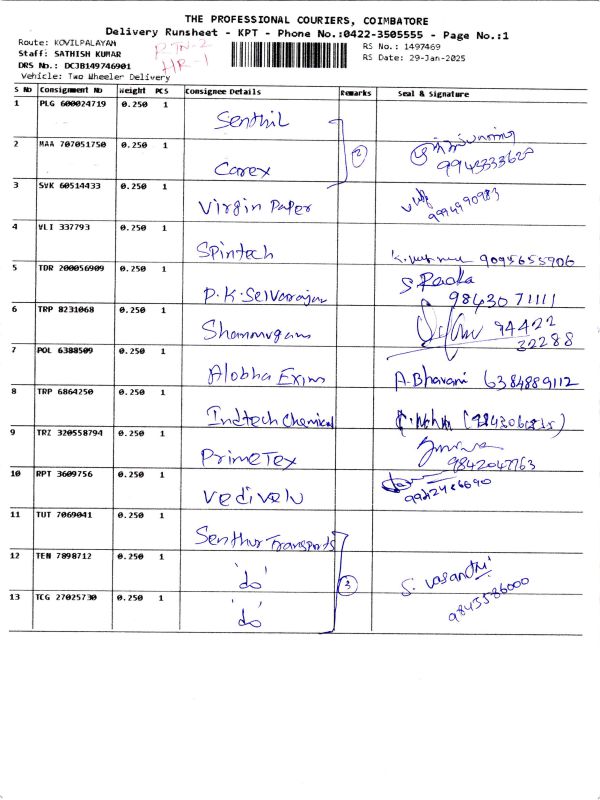 THE PROFESSIONAL COURIERS, COIMBATORE
Delivery Runsheet - KPT - Phone No.:0422-3505555 - Page No.:1
Route: KOVILPALAYAM
RTN-2
RS No.: 1497469
Staff: SATHISH KUMAR
HR-1
RS Date: 29-Jan-2025
DRS No.: DCJB149746901
Vehicle: Two Wheeler Delivery
S No Consignment No Weight PCS Consignee Details Remarks Seal & Signature
1 PLG 600024719 0.250 1 Senthil
2 MAA 707051750 0.250 1 Carex 2 9943333620
3 SVK 60514433 0.250 1 Virgin Paper 9994990983
4 VLI 337793 0.250 1 Spintech 9095655906
5 TDR 200056909 0.250 1 P.K. Selvarajan S. Radha 98430 71111
6 TRP 8231068 0.250 1 Shanmugam 94422 32288
7 POL 6388509 0.250 1 Alobha Exim A. Bhavani 6384889112
8 TRP 6864250 0.250 1 Indtech Chemical
9 TRZ 320558794 0.250 1 PrimeTex 9842047763
10 RPT 3609756 0.250 1 Vedivelu
11 TUT 7069041 0.250 1 Senthur Transports
12 TEN 7898712 0.250 1 'do' 3 S. Vasanthi
13 TCG 27025730 0.250 1 'do' 9843586000